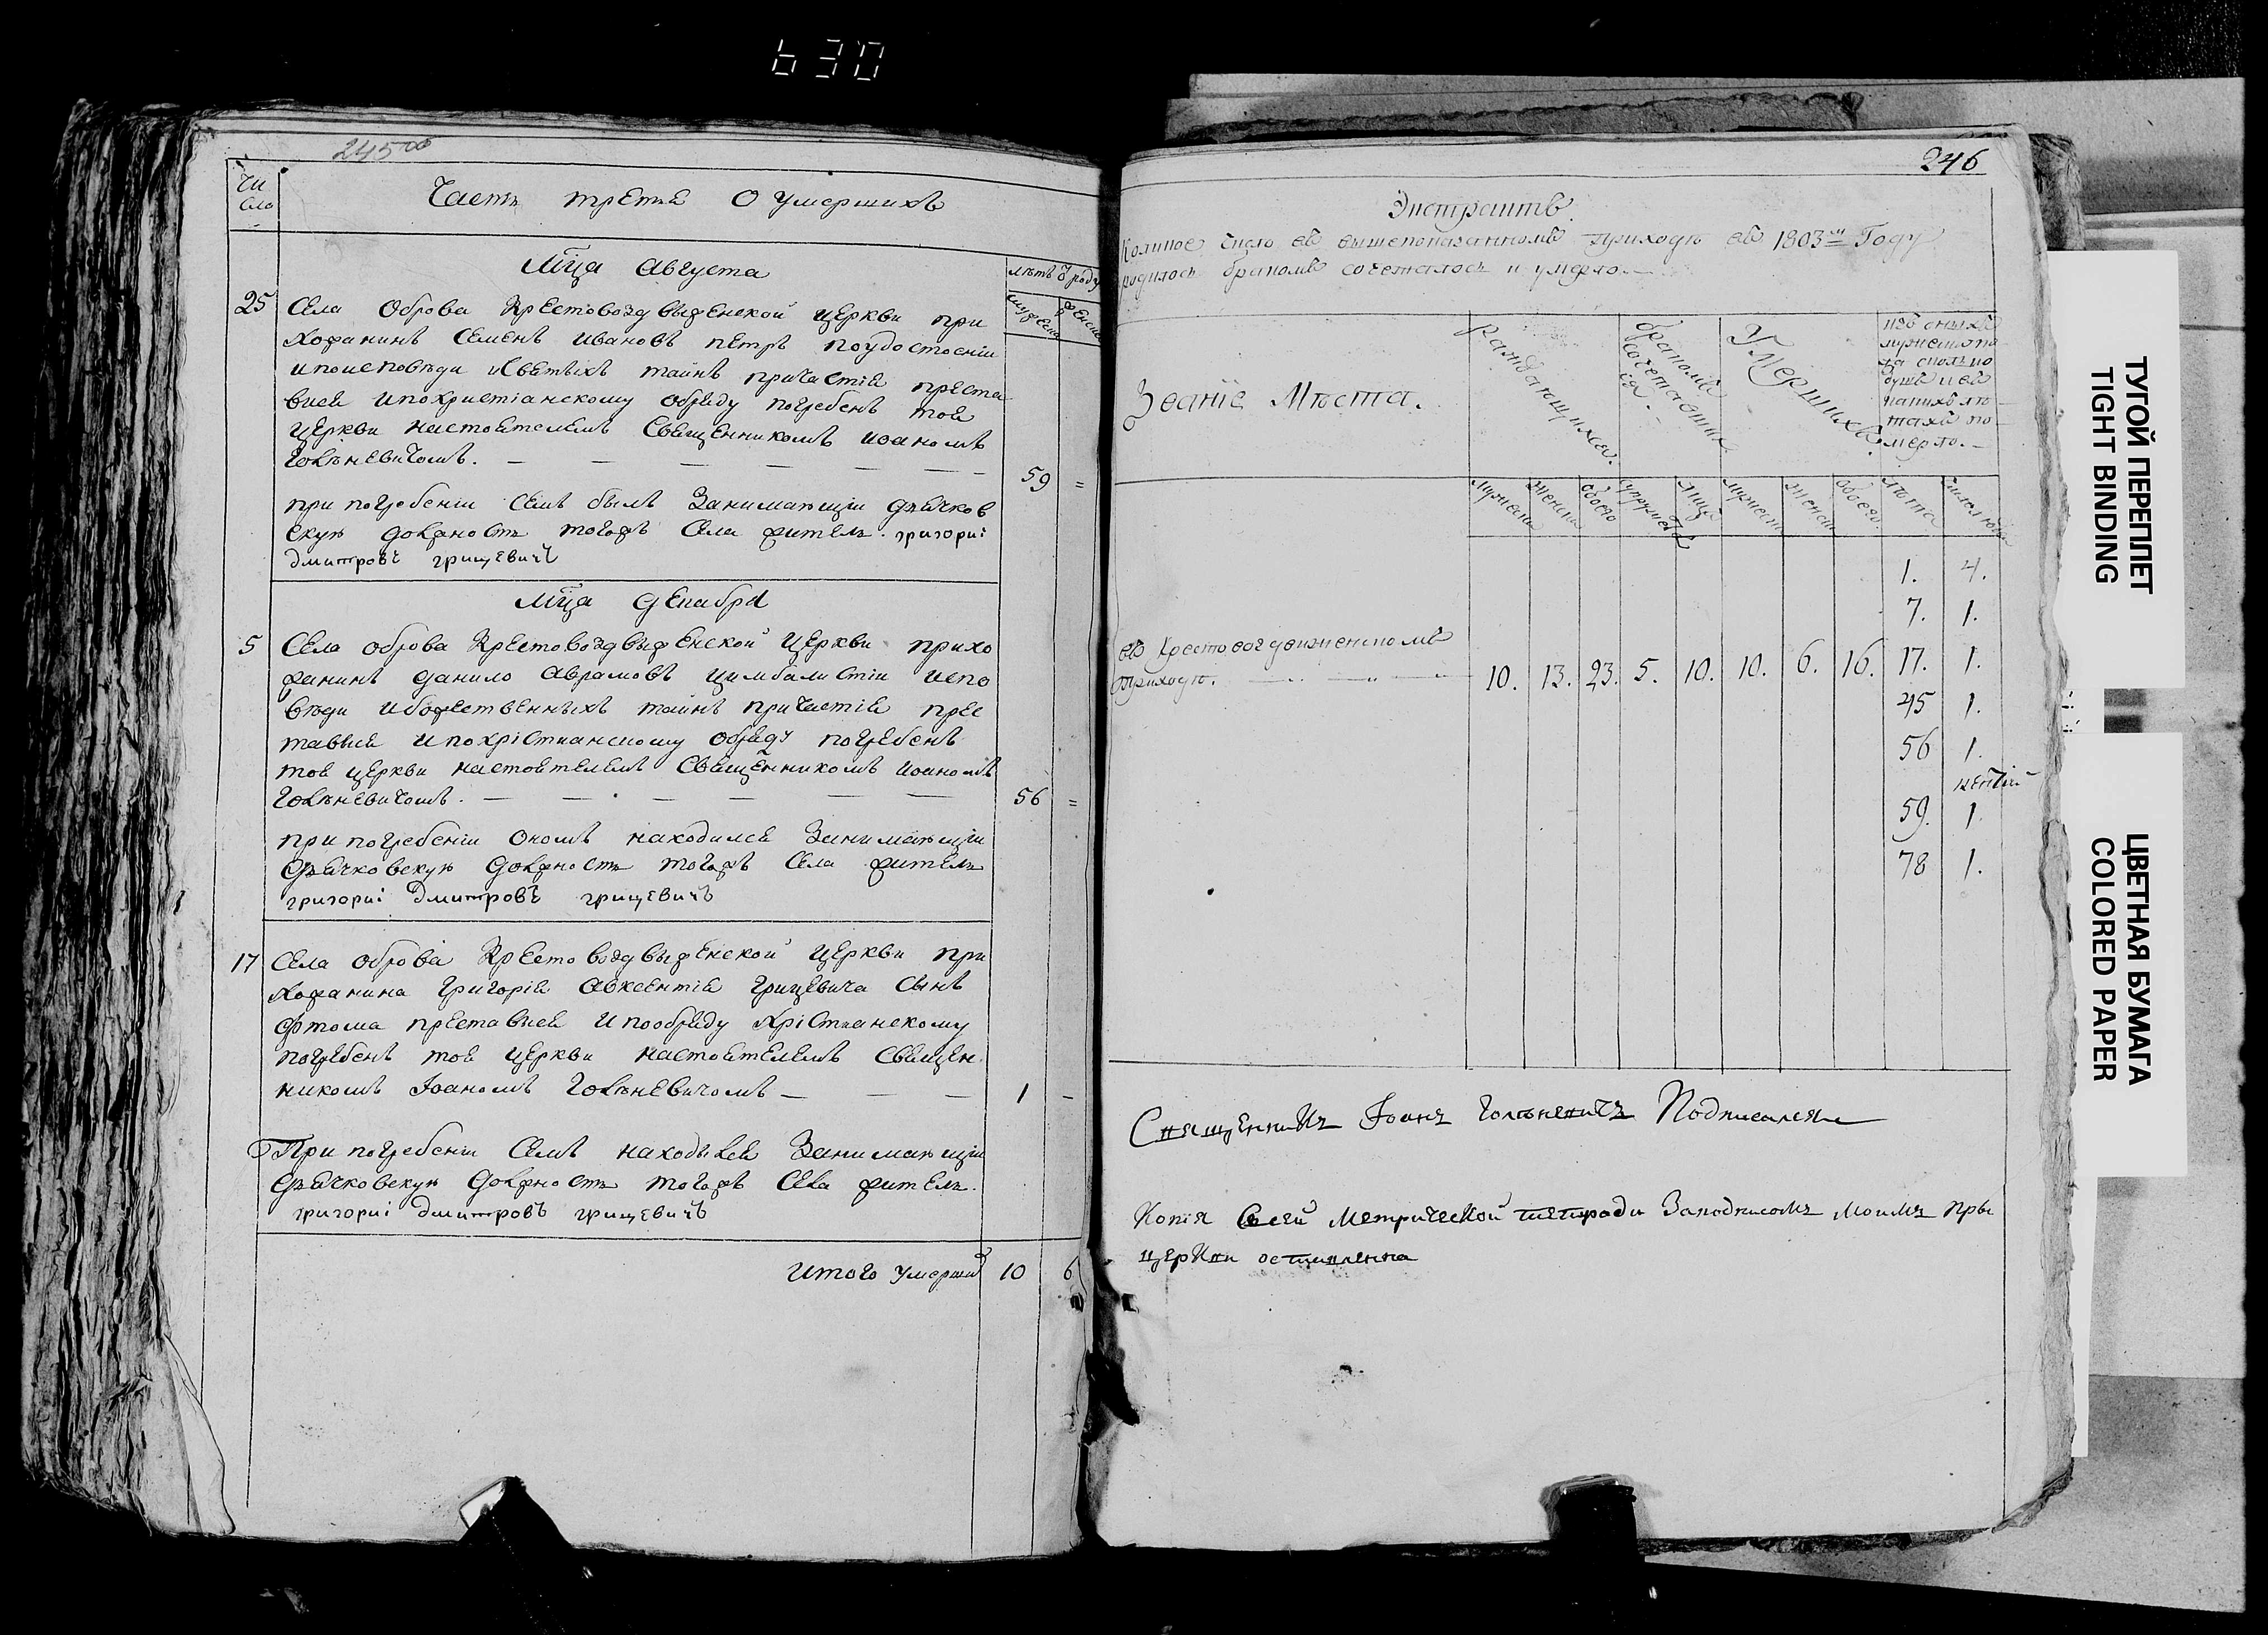 630
245об
Чи
сло
Часть третья О умершихъ
Мца августа
лѣтъ
25
Села Оброва Крестовоздвыженской церкви при
хожанинъ Семенъ Ивановъ петръ поудостоеніи
ипоисповѣди иСвятыхъ таинъ причастія преста
вися ипохристіанскому обряду погребенъ тоя
церкви настоятелемъ Священникомъ иоаномъ
Голѣневичомъ.
59 =
при погребеніи Семъ былъ Занимающій дьячков
скую должность тогожъ Села житель григориі
дмитровъ грицевичъ
Мца декабря
5
Села оброва Крестовоздвыженской Церкви прихо
жанинъ данило аврамовъ цимбалистіи испо
вѣди ибожественныхъ таинъ причастія прес
тавися ипохрістианскому обряду погребенъ
тоя церкви настоятелемъ Священникомъ иоаномъ
Голѣневичомъ.
56 =
при погребеніи ономъ находился Занимающіи
дьячковскую должность тогожъ Села житель
григориі дмитровъ грицевичъ
17
Села оброва Крестовоздвыженской Церкви при
хожанина Григорія авксентія Грицевича Сынъ
фтома преставися ипообряду хрістианскому
погребенъ тоя церкви настоятелемъ Священ
никомъ Іоаномъ Голѣневичомъ —
1 -
При погребеніи Семъ находился Занимающіи
дьячковскую должность тогожъ Села житель
григориі дмитровъ грицевичъ
итого умерши 10 6
246
Экстрактъ.
Коликое число въ вышепоказанномъ приходѣ въ 1803м Году
родилось бракомъ сочеталось и умерло.
Званіе Мѣста.
Раждающихся.
бракомъ
сочетавших
ся.
Умершихъ.
изъ оныхъ
мужеска по
ла сколько
душъ и въ
какихъ лѣ
тахъ по
мерло.
мужеска
женска
обоего
супружества
лица
мужеска
женска
обоего
лѣта
число
1. 4.
7. 1.
въ Крестовоздвиженскомъ
приходѣ. 10. 13. 23. 5. 10. 10. 6. 16. 17. 1.
45 1.
56 1.
59. 1.
78 1.
Священникъ Іоанъ Голѣневичъ Подписался
Копія Всей Метрической тетради Заподписомъ моимъ при
церкви оставленна
ТУГОЙ ПЕРЕПЛЕТ
TIGHT BINDING
ЦВЕТНАЯ БУМАГА
COLORED PAPER